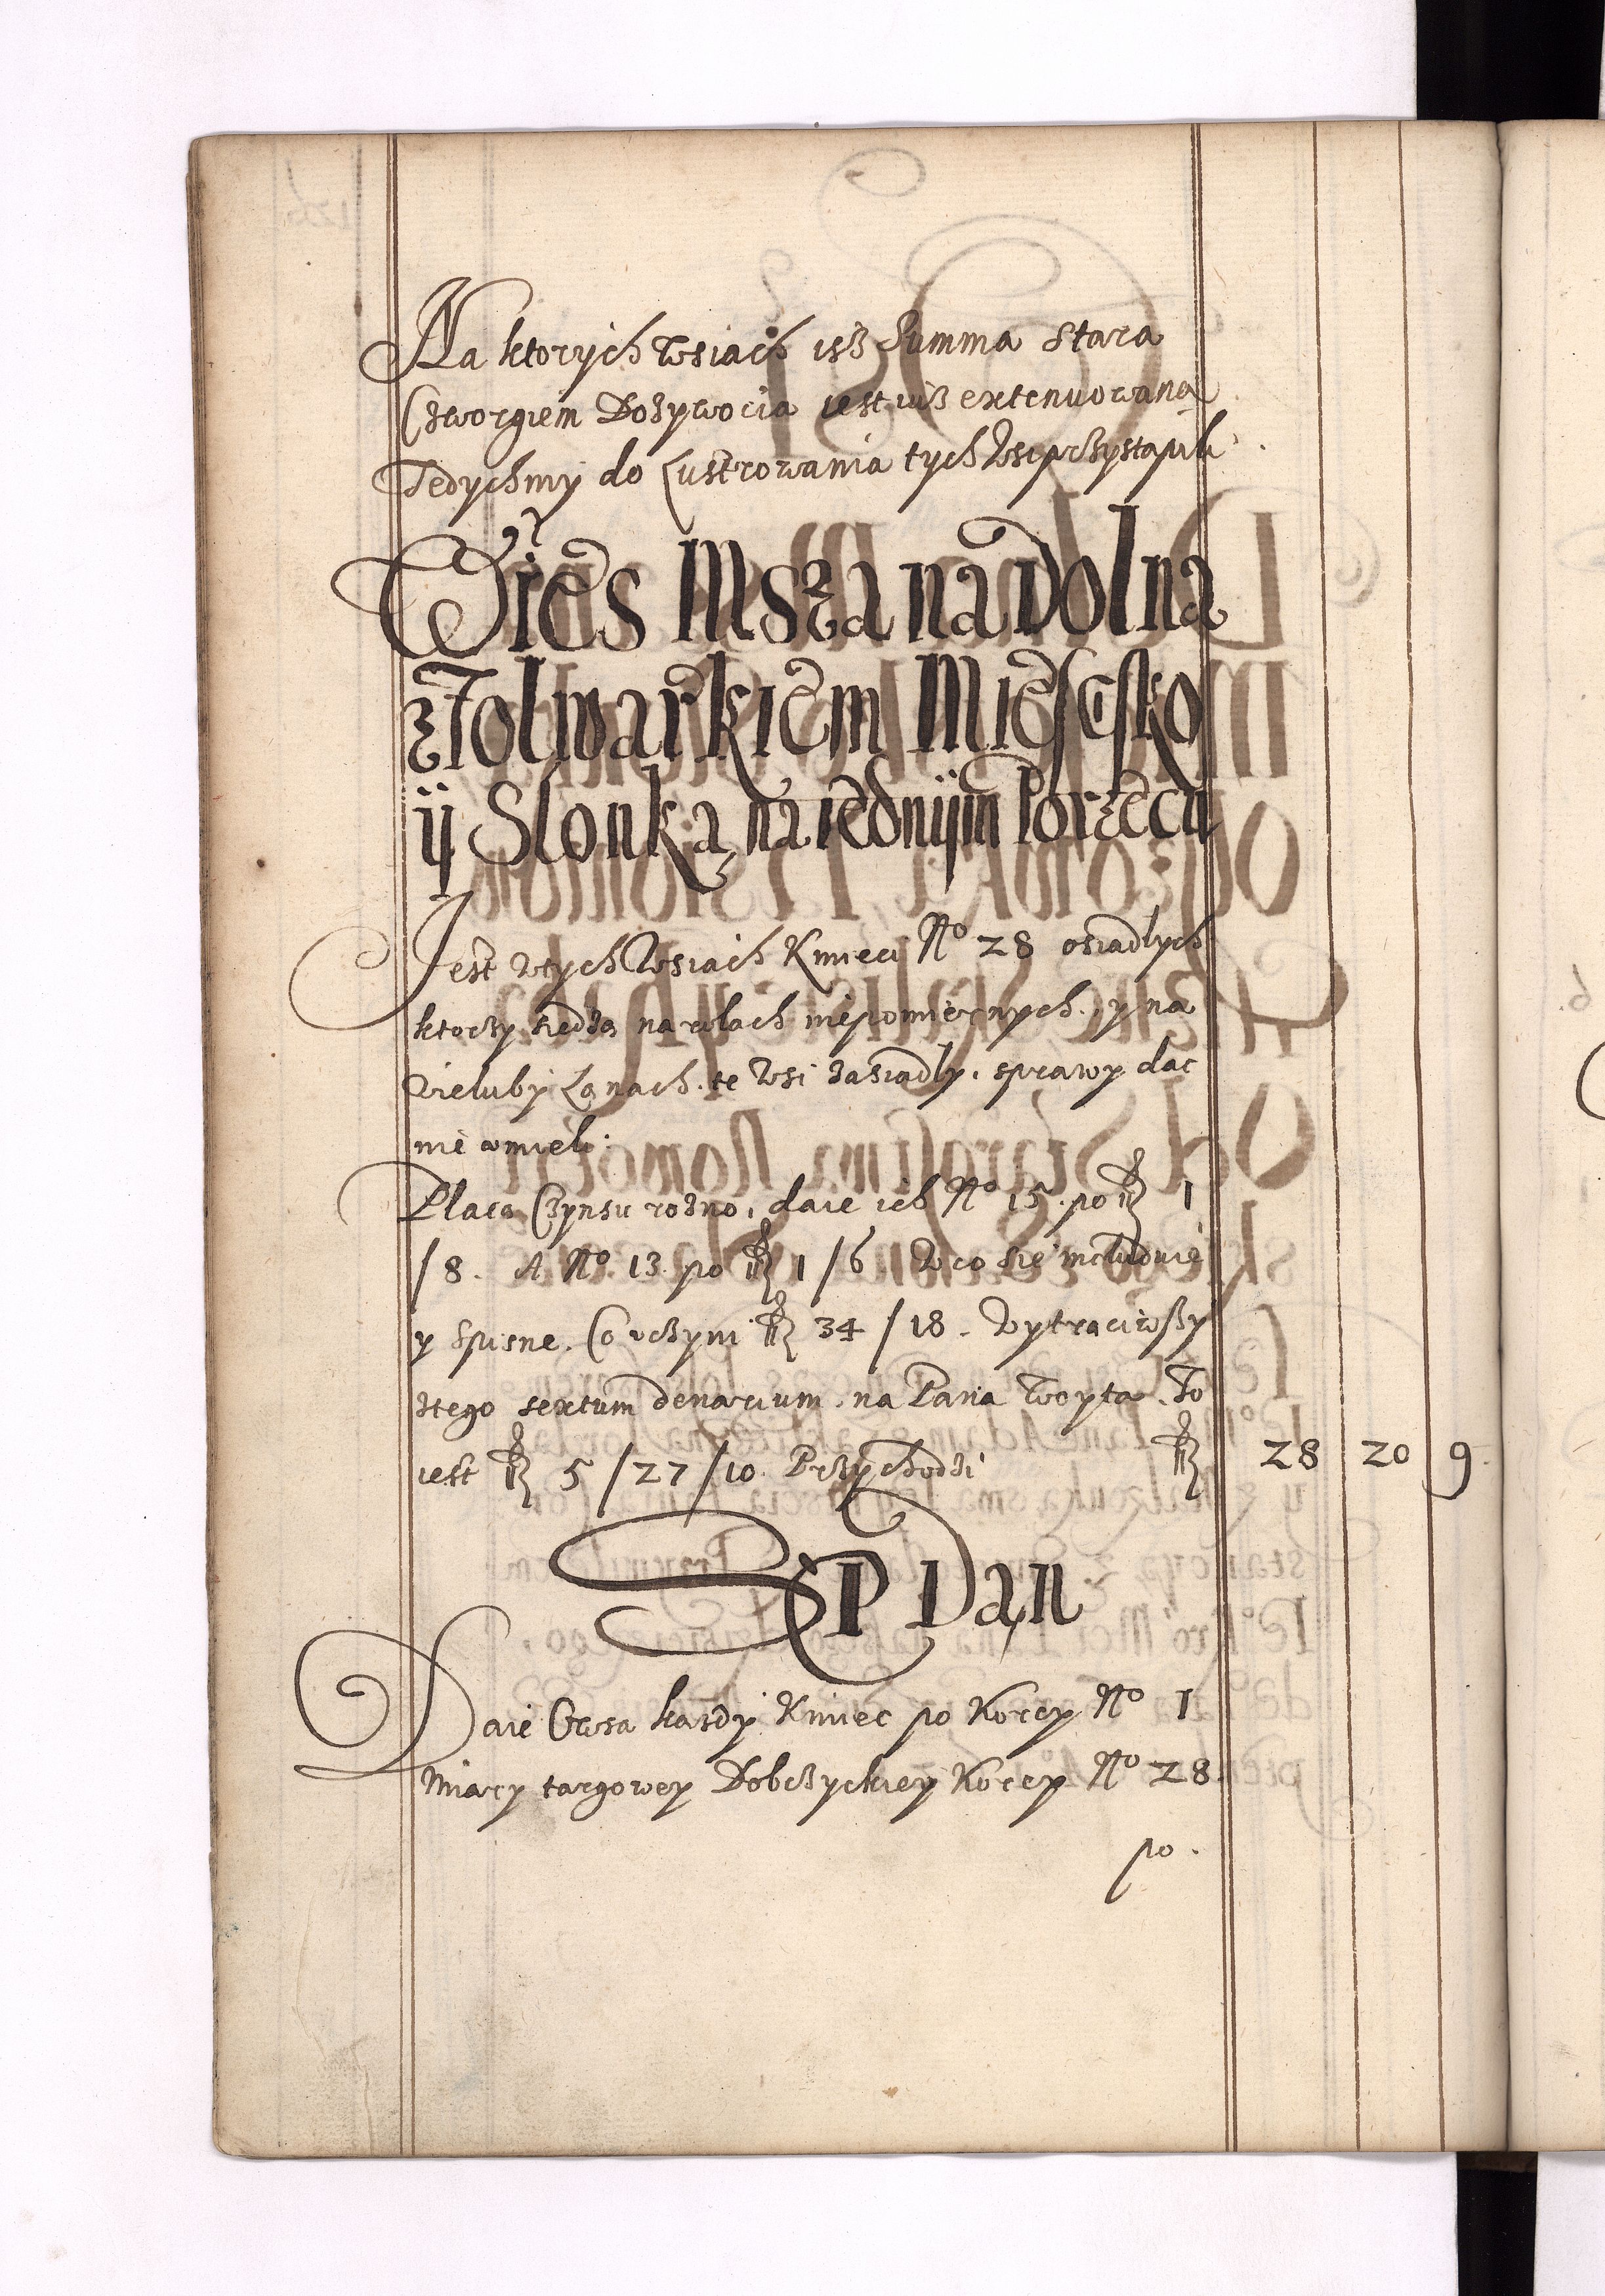 Na ktorych wsiach isz Summa stara
Czworgiem Dozywocia iest iusz extenuowana
Tedychmy do Lustrowania tych wsi przystąpili
Wies Mszana Dolna
z Folwarkiem Miescisko
ÿ Slonka na iednÿm Porzeczu
Jest w tych wsiach Kmieci No 28 osiadlych
ktorzy siedzą na rolach niepomiernych, y na
wieluby Lanach te wsi zasiadly, sprawy dac
nie umieli.
Placą Czynsu rozno, daie ich No 15. po fl 1
/8. A No 13. po fl 1/6 w co sie includuie
y Spisne. Co uczyni fl 34/18. wytraciwszy
ztego sextum denarium, na Pana Woyta. To
iest fl 5/27/10. Przychodzi fl 28 20 9
SP Dan
Daie Owsa kazdy Kmiec po Korcy No 1
Miary targowey Dobczyckiey Korcy No 28.
po.